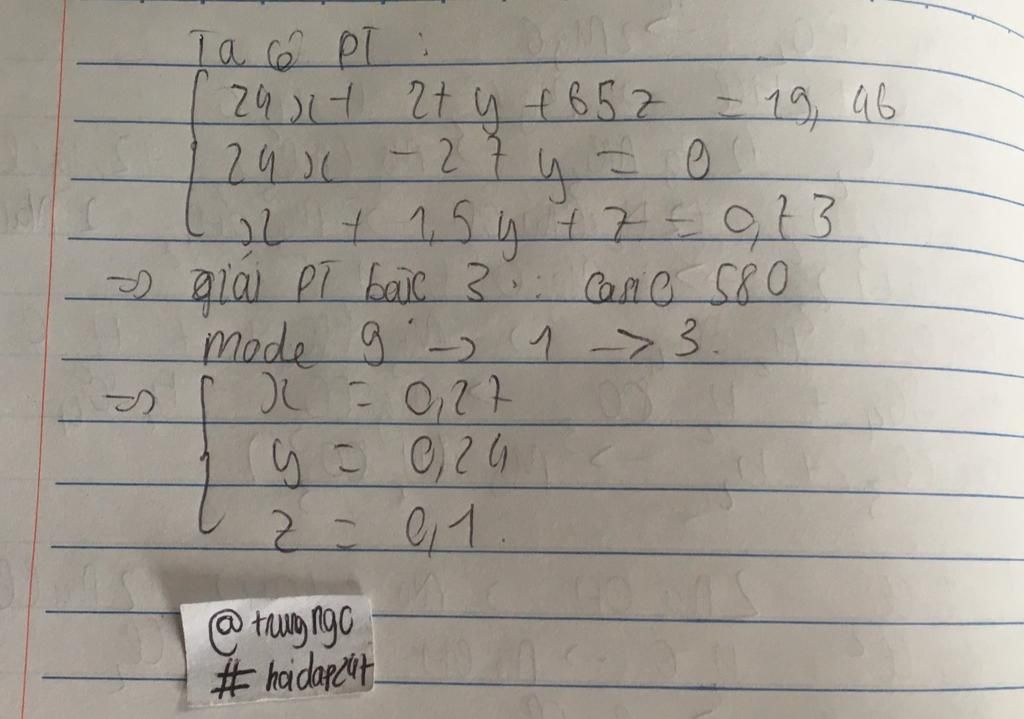 Ta có PT :
24x + 27y + 65z = 19,46
24x - 27y = 0
x + 1,5y + z = 0,73
=> giải PT bậc 3 : casio 580
Mode 9 -> 1 -> 3.
=> x = 0,27
y = 0,24
z = 0,1.
@trungngo
# hoidap247